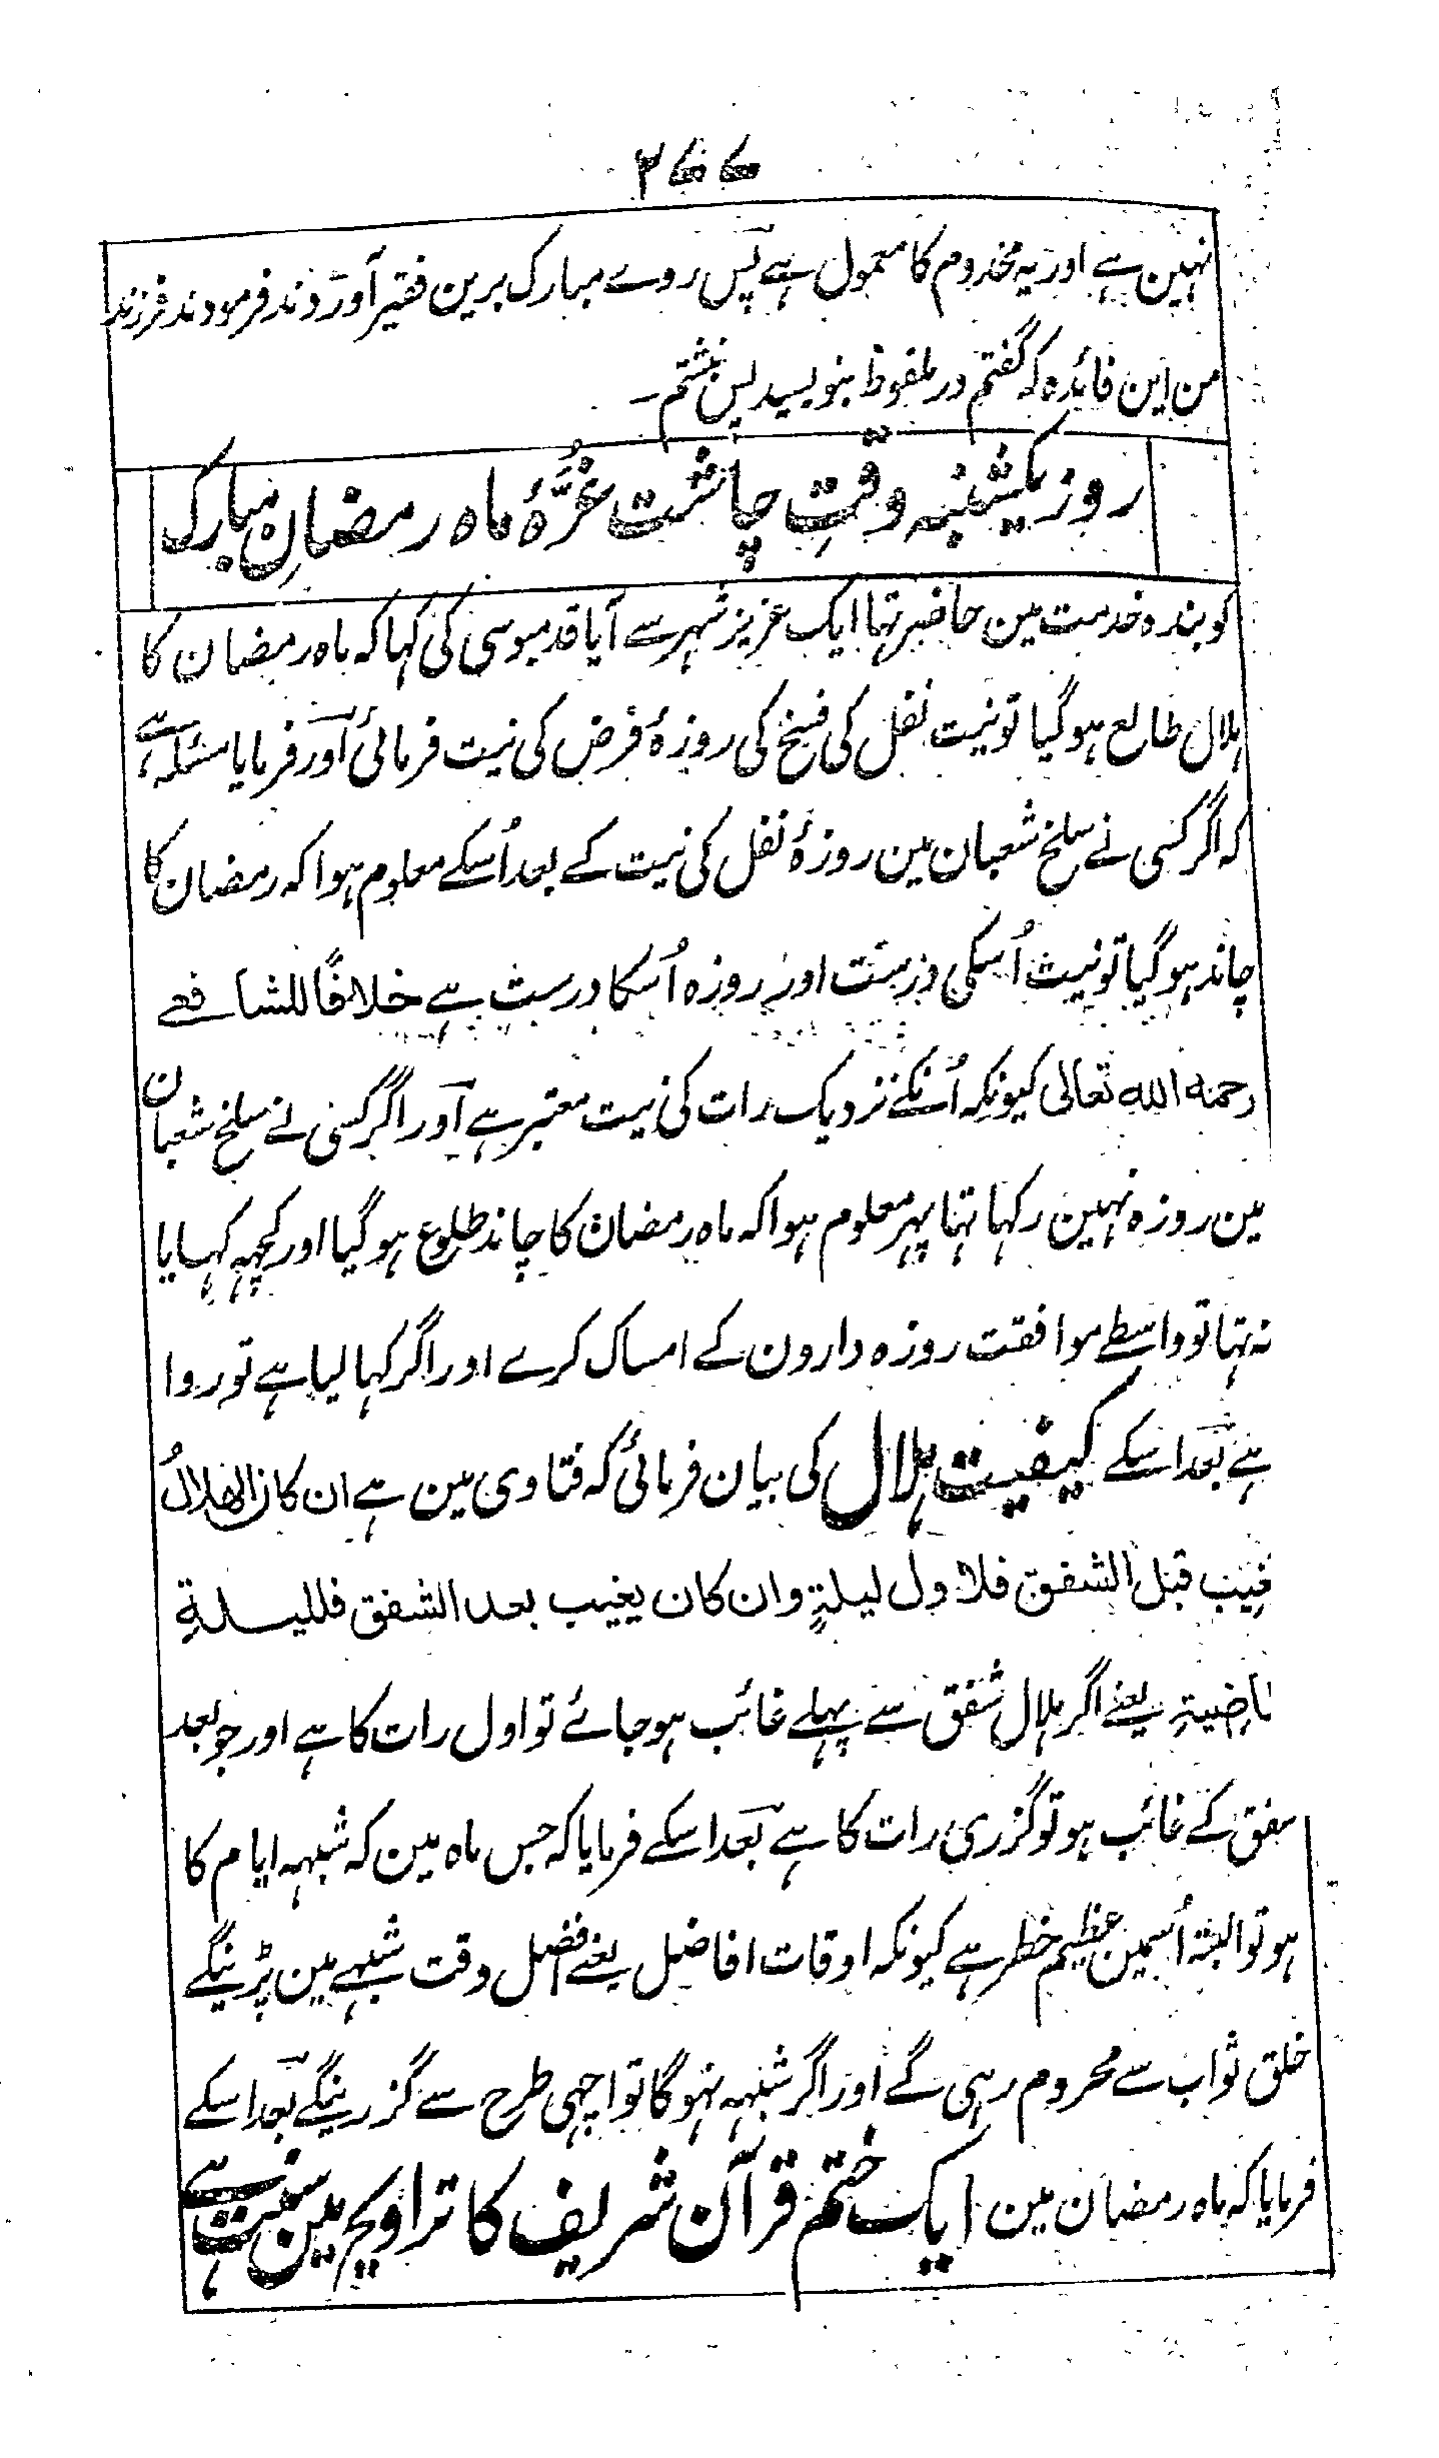 ۳۶۶
نہین ہے اور یہ مخدوم کا معمول ہے پس روے مبارک برین فقیر آوردند فرمودند فرزند
من این فائدہ کہ گفتم در ملفوظ بنویسید پس نبشتم۔
روز یکشنبہ وقتِ چاشت غُرَّۂ ماہ رمضانِ مبارک
کو بندہ خدمت مین حاضر تہا ایک عزیز شہر سے آیا قدمبوسی کی کہا کہ ماہ رمضان کا
ہلال طالع ہوگیا تو نیت نفل کی فسخ کی روزۂ فرض کی نیت فرمائی اور فرمایا مسئلہ ہے
کہ اگر کسی نے سلخ شعبان مین روزۂ نفل کی نیت کے بعد اُسکے معلوم ہوا کہ رمضان کا
چاند ہوگیا تو نیت اُسکی درست اور روزہ اُسکا درست ہے خلافًا للشافعے
رحمہ اللہ تعالی کیونکہ اُنکے نزدیک رات کی نیت معتبر ہے اور اگر کسی نے سلخ شعبان
مین روزہ نہین رکہا تہا پہر معلوم ہوا کہ ماہ رمضان کا چاند طلوع ہوگیا اور کچہہ کہایا
نہ تہا تو واسطے موافقت روزہ دارون کے امساک کرے اور اگر کہا لیا ہے تو روا
ہے بعد اسکے کیفیت ہلال کی بیان فرمائی کہ فتاوی مین ہے ان کان الهلالُ
یغیب قبل الشفق فلاول لیلةٍ وان کان یغیب بعد الشفق فللیلةِ
ماضیةِ یعنے اگر ہلال شفق سے پہلے غائب ہوجائے تو اول رات کا ہے اور جو بعد
شفق کے غائب ہو تو گزری رات کا ہے بعد اسکے فرمایا کہ جس ماہ مین کہ شبہہ ایام کا
ہو تو البتہ اُسمین عظیم خطر ہے کیونکہ اوقات افاضل یعنے افضل وقت شبہے مین پڑینگے
خلق ثواب سے محروم رہی گے اور اگر شبہہ نہوگا تو اچہی طرح سے گزرینگے بعد اسکے
فرمایا کہ ماہ رمضان مین ایک ختم قرآن شریف کا تراویح مین سنت ہے